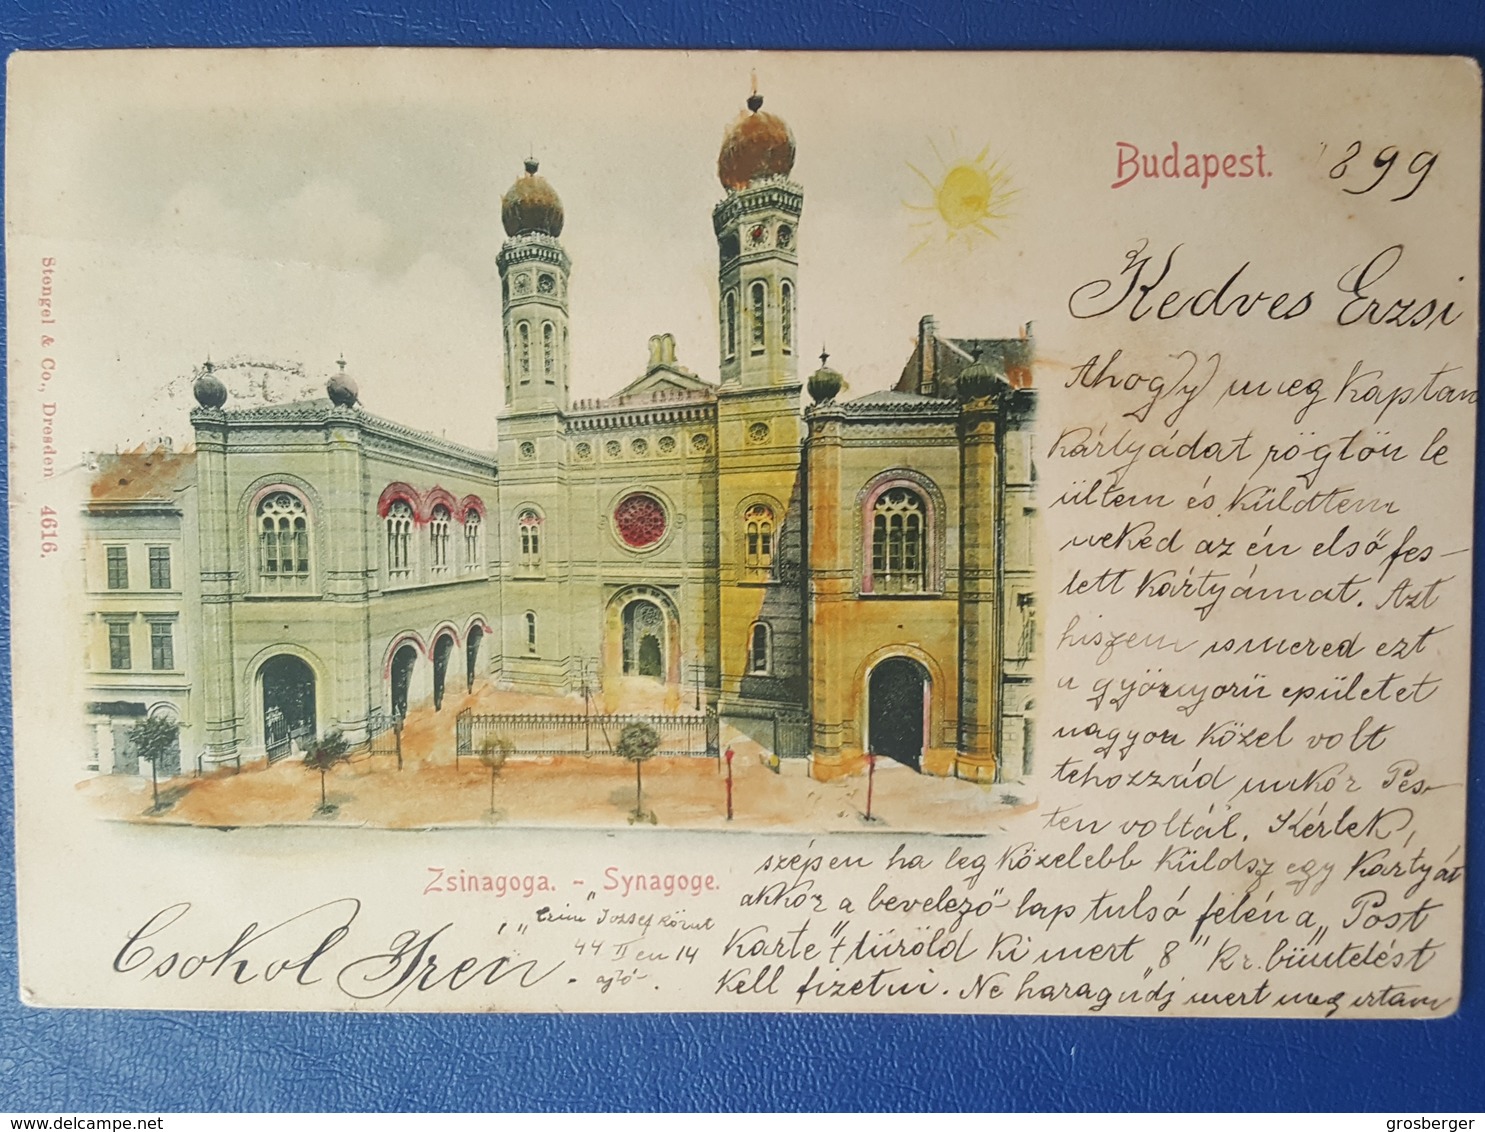 Budapest. 1899
Stengel & Co., Dresden 4616.
Kedves Erzsi
Ahog)y) meg kaptam
kártyádat rögtön le
ültem és küldtem
neked az én első fes-
tett kártyámat. Azt
hiszem ismered ezt
a gyönyörü epületet
nagyon közel volt
tehozzád mikór Pes-
ten voltál. Kérlek,
szépen ha leg közelebb küldsz egy kartyát
akkór a bevelező lap tulsó felén a „Post
karte" türöld ki mert „8" kr. büntetést
kell fizetni. Ne haragudj mert meg irtam
Zsinagoga. - Synagoge.
Csokol Iren
„Czim" József körut
44 II em 14
ajtó.
grosberger
delcampe.net